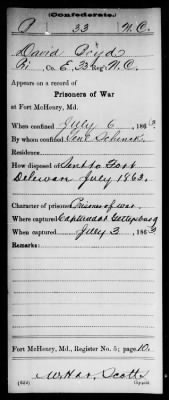 (Confederate.)
B 33 N.C.
David Boyd
Pri Co. E. 33 Reg't N.C.
Appears on a record of
Prisoners of War
at Fort McHenry, Md.
When confined July 6, 1863
By whom confined Genl Schenck
Residence
How disposed of Sent to Fort
Deleware July 1863.
Character of prisoner Prisoner of war.
Where captured Gettysburg
When captured July 3, 1863
Remarks:
Fort McHenry, Md., Register No. 5; page 10.
Scott
Copyist.